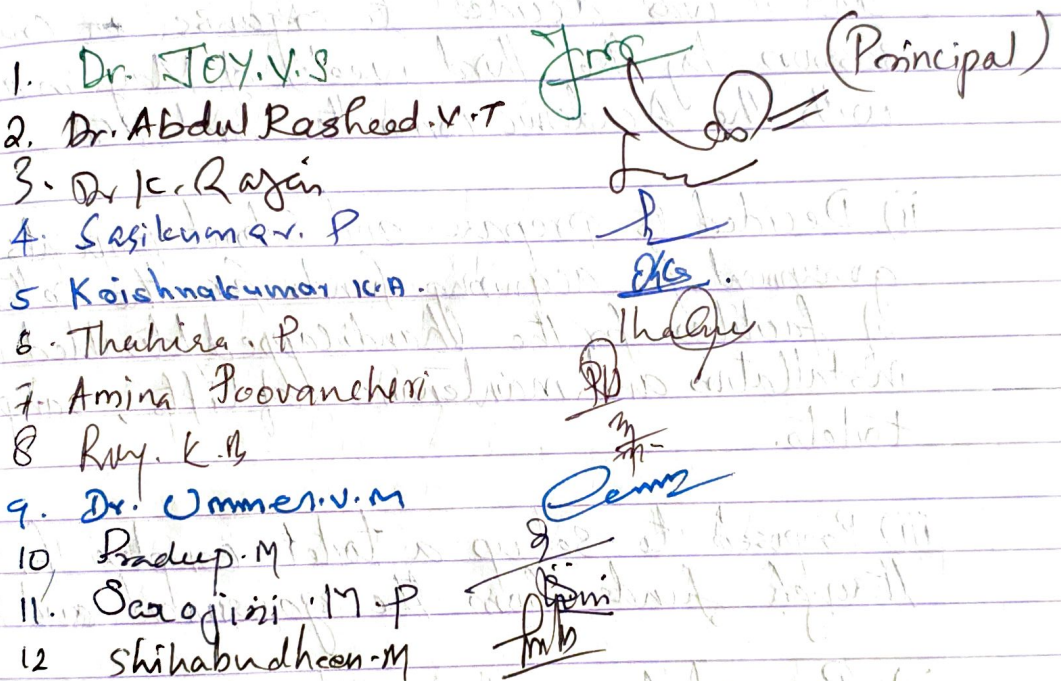 1. Dr. JOY.V.S (Principal)
2. Dr. Abdul Rasheed.V.T
3. Dr K. Rajan
4. Sasikumar. P
5 Krishnakumar K.A.
6. Thahira. P
7. Amina Poovancheri
8 Roy. K.B
9. Dr. Ummer.V.M
10 Pradeep.M
11. Sarojini.M.P
12 Shihabudheen-M